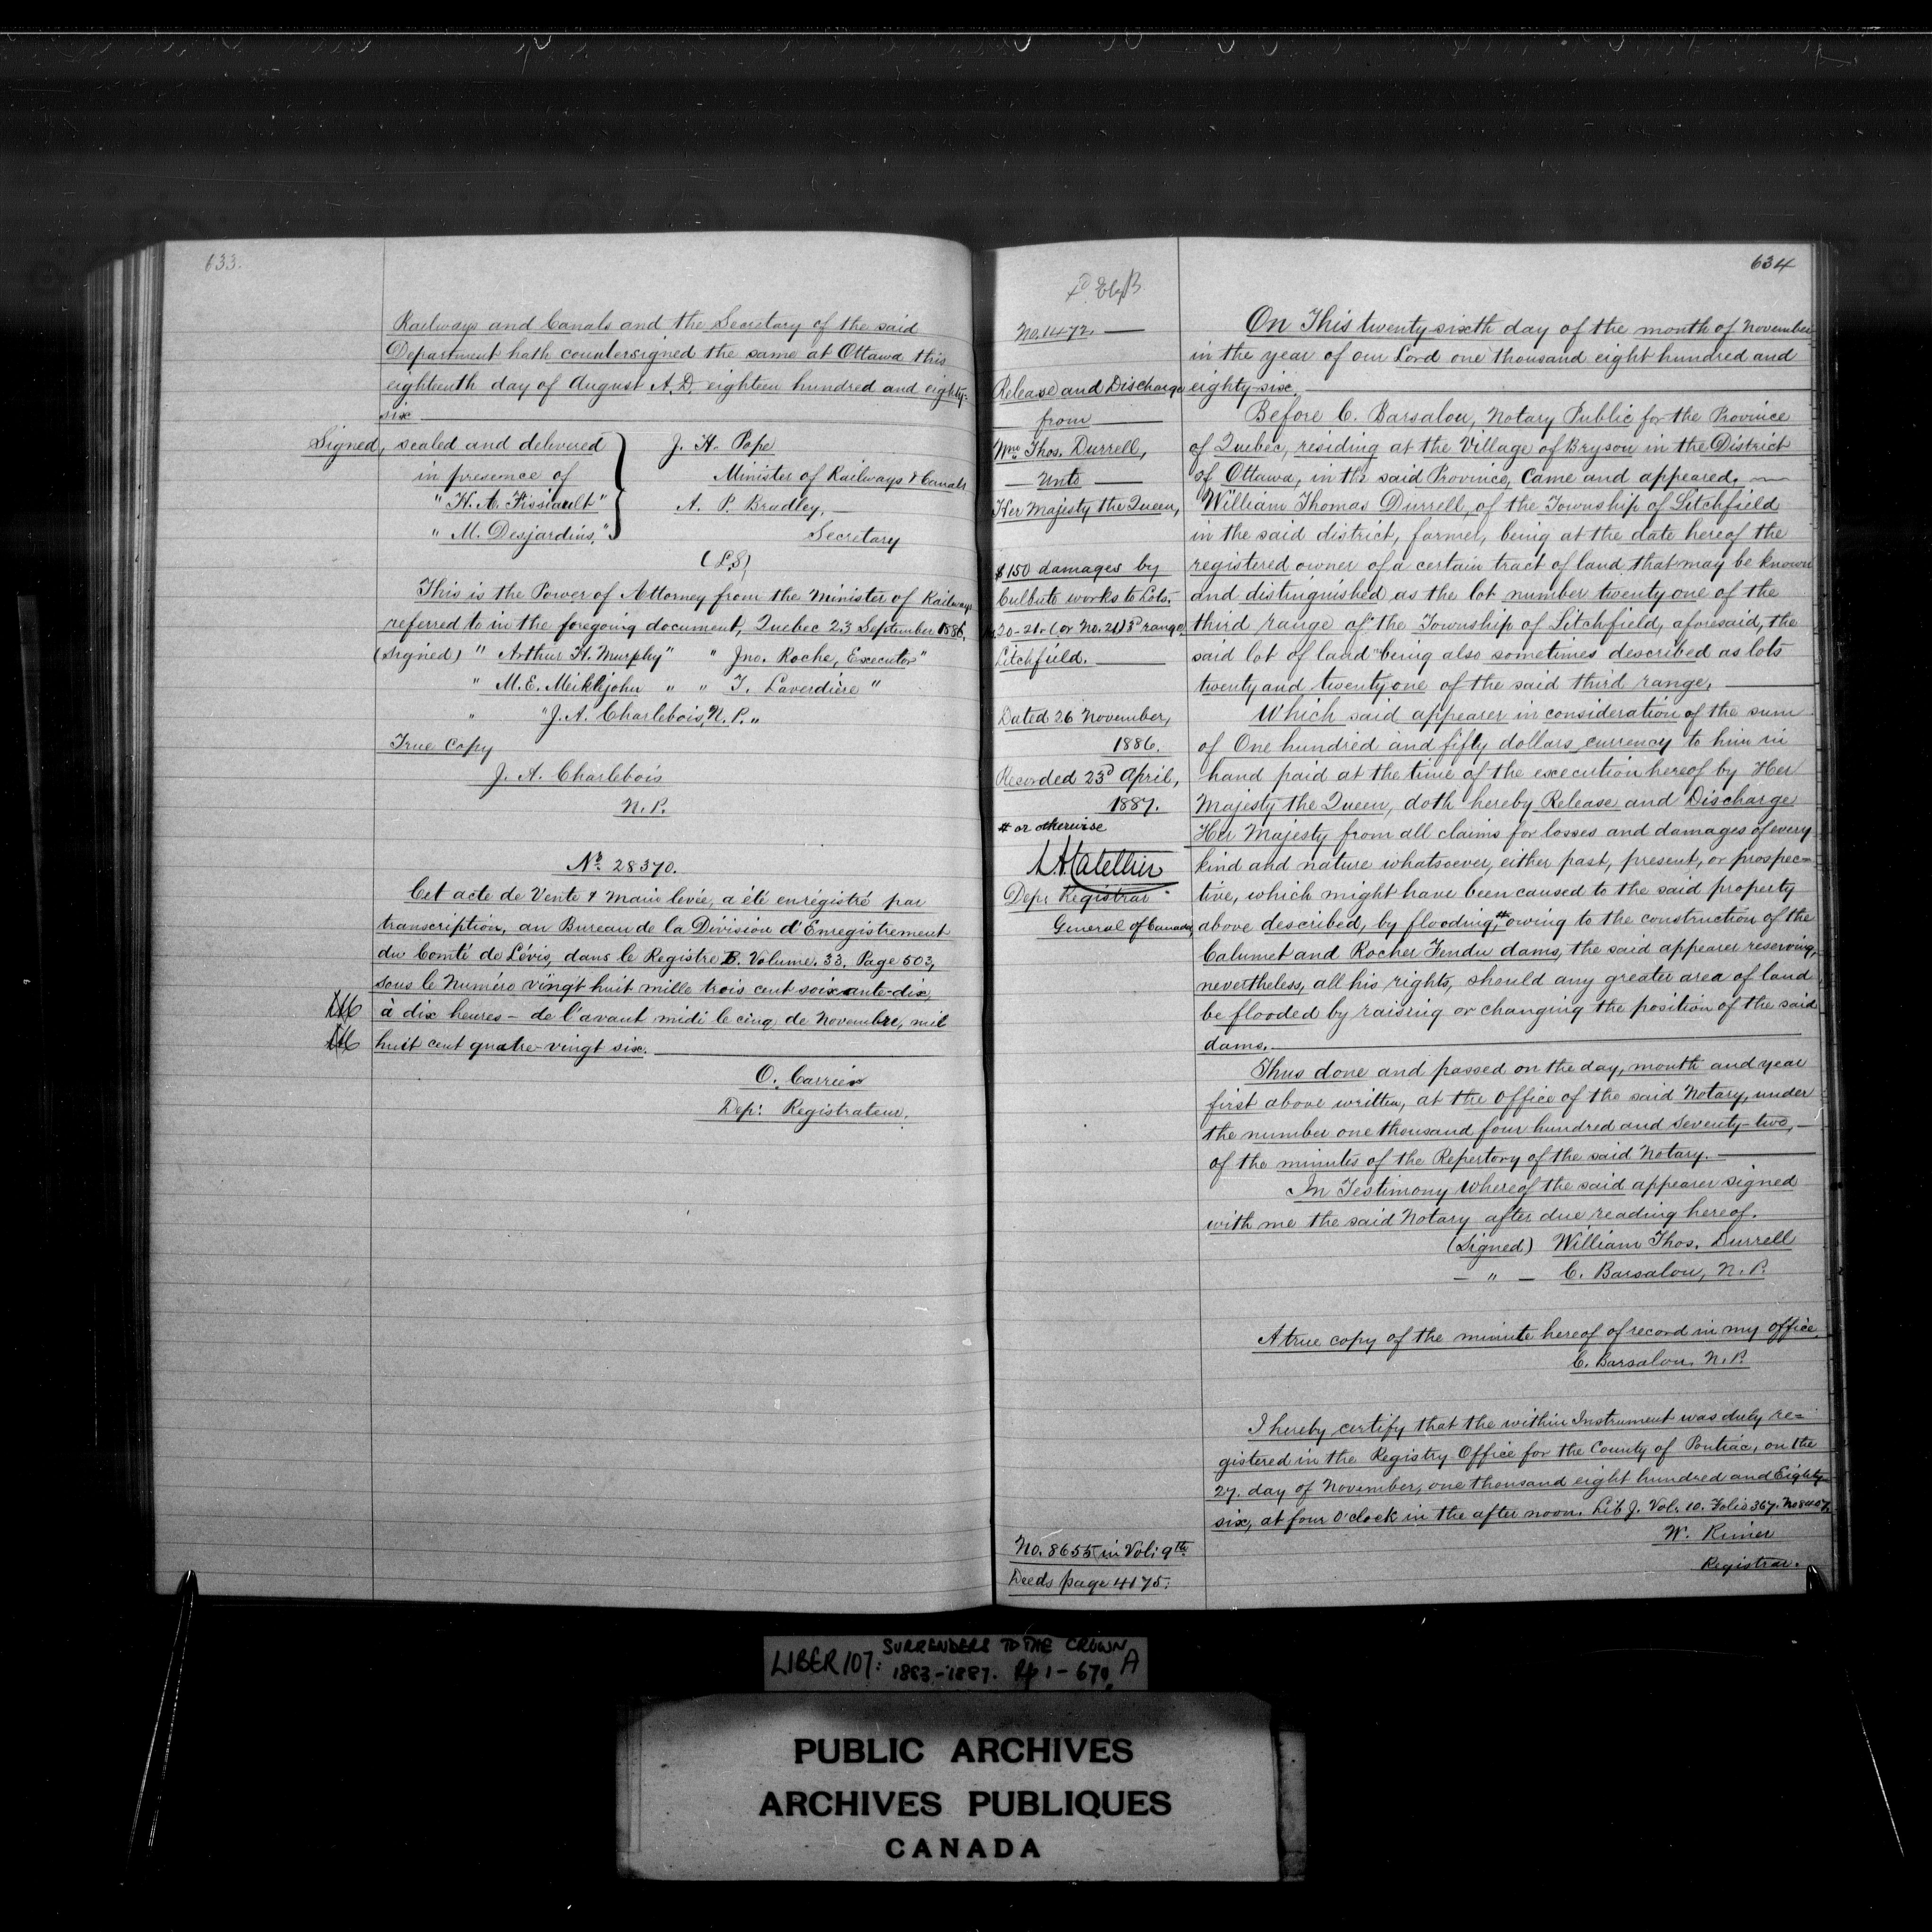 633.
Railways and Canals and the Secretary of the said
Department hath countersigned the same at Ottawa this
eighteenth day of August A.D. eighteen hundred and eighty-
six
Signed, sealed and delivered
in presence of
"H. A. Fissiault"
" M. Desjardins,"
J. H. Pope
Minister of Railways & Canals
A. P. Bradley,
Secretary
(L.S)
This is the Power of Attorney from the Minister of Railways
referred to in the foregoing document, Quebec 23 September 1886,
(Signed) " Arthur H. Murphy" " Jno. Roche, Executor"
" M. E. Meiklejohn " " T. Laverdière "
" "J. A. Charlebois, N. P. "
True Copy
J. A. Charlebois
N. P.
No. 28370.
Cet acte de Vente & Main levée, a été enrégistré par
transcription, au Bureau de la Division d'Enregistrement
du Comté de Lévis, dans le Registre B. Volume. 33. Page 503,
sous le Numéro vingt huit mille trois cent soixante-dix,
à dix heures - de l'avant midi le cinq de Novembre, mil
huit cent quatre-vingt six.
O. Carrier
Dep: Registrateur.
634
No. 1472.
Release and Discharge
from
Wm. Thos. Durrell,
Unto
Her Majesty the Queen,
$150 damages by
Culbute works to Lots.
20-21. (or No. 21) 3d range
Litchfield.
Dated 26 November,
1886.
Recorded 23d April,
1887.
# or otherwise
Dep: Registrar
General of Canada
No. 8655 in Vol: 9th
Deeds page 4175.
On This twenty-sixth day of the month of November
in the year of our Lord one thousand eight hundred and
eighty-six
Before C. Barsalou, Notary Public for the Province
of Quebec, residing at the Village of Bryson in the District
of Ottawa, in the said Province, Came and appeared,
William Thomas Durrell, of the Township of Litchfield
in the said district, farmer, being at the date hereof the
registered owner of a certain tract of land that may be known
and distinguished as the lot number twenty one of the
third range of the Township of Litchfield, aforesaid, the
said lot of land being also sometimes described as lots
twenty and twenty one of the said third range,
Which said appearer in consideration of the sum
of One hundred and fifty dollars currency to him in
hand paid at the time of the execution hereof by Her
Majesty the Queen, doth hereby Release and Discharge
Her Majesty from all claims for losses and damages of every
kind and nature whatsoever, either past, present, or prospec=
tive, which might have been caused to the said property
above described, by flooding, # owing to the construction of the
Calumet and Rocher Fendu dams, the said appearer reserving,
nevertheless, all his rights, should any greater area of land
be flooded by raising or changing the position of the said
dams.
Thus done and passed on the day, month and year
first above written, at the Office of the said Notary, under
the number one thousand four hundred and Seventy-two,
of the minutes of the Repertory of the said Notary.
In Testimony whereof the said appearer signed
with me the said Notary after due reading hereof.
(Signed) William Thos. Durrell
" C. Barsalou, N. P.
A true copy of the minute hereof of record in my office
C. Barsalou. N. P.
I hereby certify that the within Instrument was duly re=
gistered in the Registry Office for the County of Pontiac, on the
27. day of November, one thousand eight hundred and Eighty
six, at four O'clock in the after noon. Lib J. Vol. 10. Folio 367. No
Registrar.
LIBER 107: SURRENDERS TO THE CROWN
1883-1887. pp 1-670 A
PUBLIC ARCHIVES
ARCHIVES PUBLIQUES
CANADA